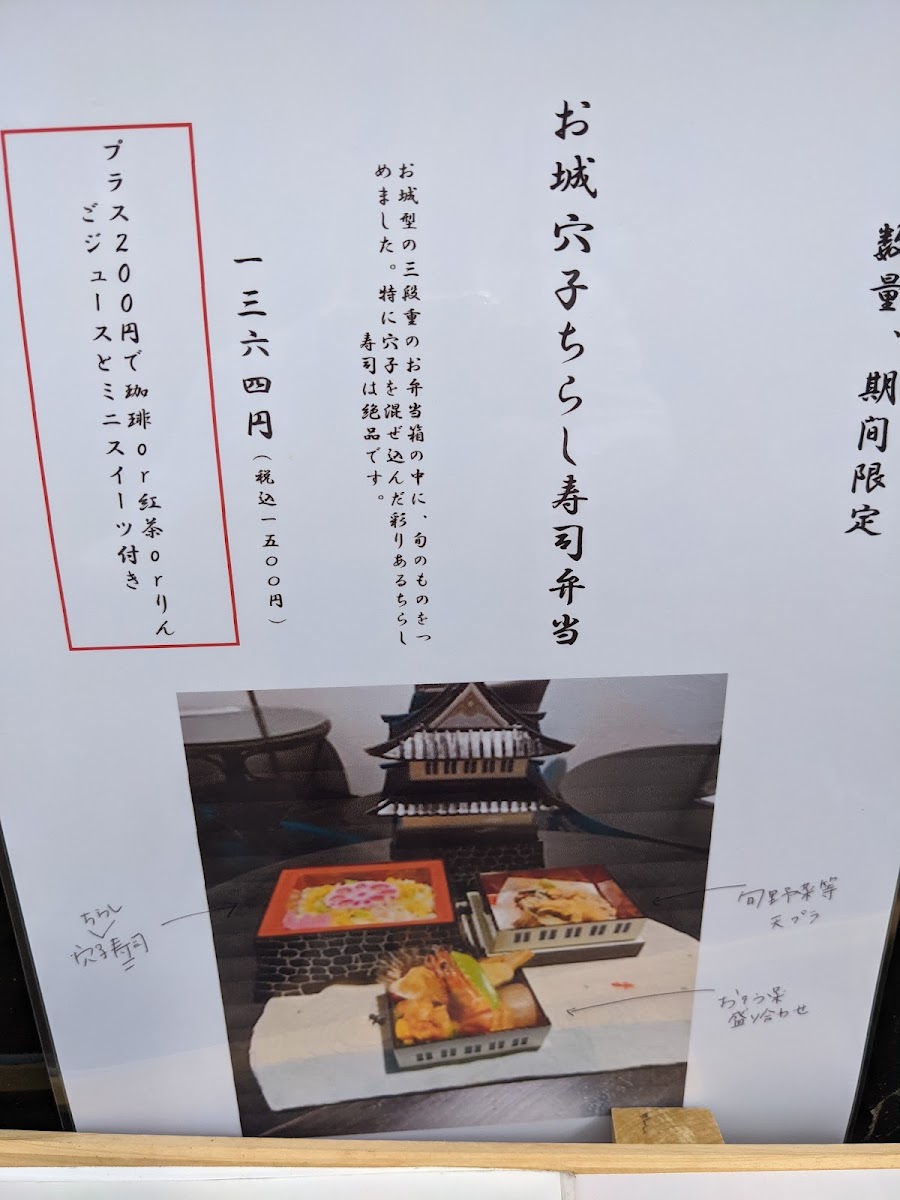 数量、期間限定
お城穴子ちらし寿司弁当
お城型の三段重のお弁当箱の中に、旬のものをつ
めました。特に穴子を混ぜ込んだ彩りあるちらし
寿司は絶品です。
一三六四円（税込一五〇〇円）
プラス200円で珈琲or紅茶orりん
ごジュースとミニスイーツ付き
ちらし
穴子寿司
旬野菜等
天プラ
おそう菜
盛り合わせ